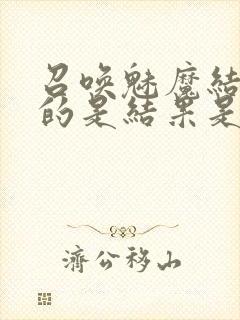 召唤魅魔結
的是結果是
濟公移山